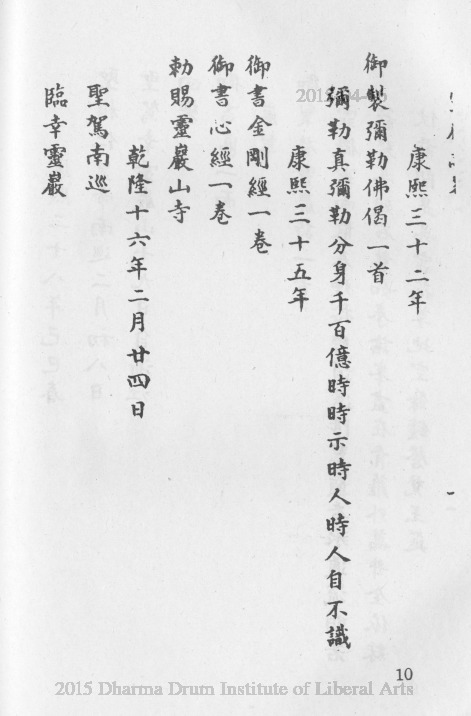 康熙三十二年
御製彌勒佛偈一首
彌勒真彌勒分身千百億時時示時人時人自不識
康熙三十五年
御書金剛經一卷
御書心經一卷
勅賜靈巖山寺
乾隆十六年二月廿四日
聖駕南巡
臨幸靈巖
10
2015 Dharma Drum Institute of Liberal Arts